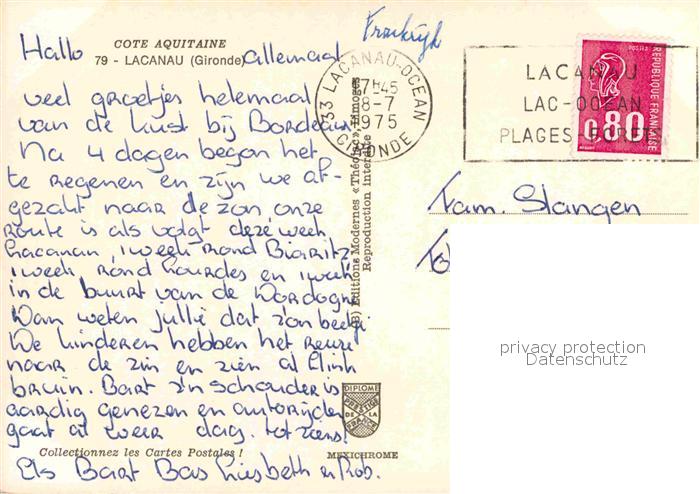 Frankrijk
COTE AQUITAINE
79 - LACANAU (Gironde)
Hallo allemaal
veel groetjes helemaal
van de kust bij Bordeaux
Na 4 dagen begon het
te regenen en zijn we af-
gezakt naar de zon, onze
route is als volgt deze week
Lacanau, 1 week rond Biarritz
1 week rond Lourdes en 1 week
in de buurt van de Dordogne
Dan weten jullie dat zo'n beetje
De kinderen hebben het reuze
naar de zin en zien al flink
bruin. Bart z'n schouder is
aardig genezen en autorijden
gaat al weer dag. tot ziens!
Els Bart Bas Liesbeth en Rob.
Collectionnez les Cartes Postales !
MEXICHROME
DIPLOME
PRESTIGE
DE LA
FRANCE
Editions Modernes «Théojac», Limoges
Reproduction interdite
33 LACANAU-OCEAN
17H45
8-7
1975
GIRONDE
LACANAU
LAC-OCEAN
PLAGES FORETS
POSTES
REPUBLIQUE FRANÇAISE
0,80
Fam. Slangen
privacy protection
Datenschutz